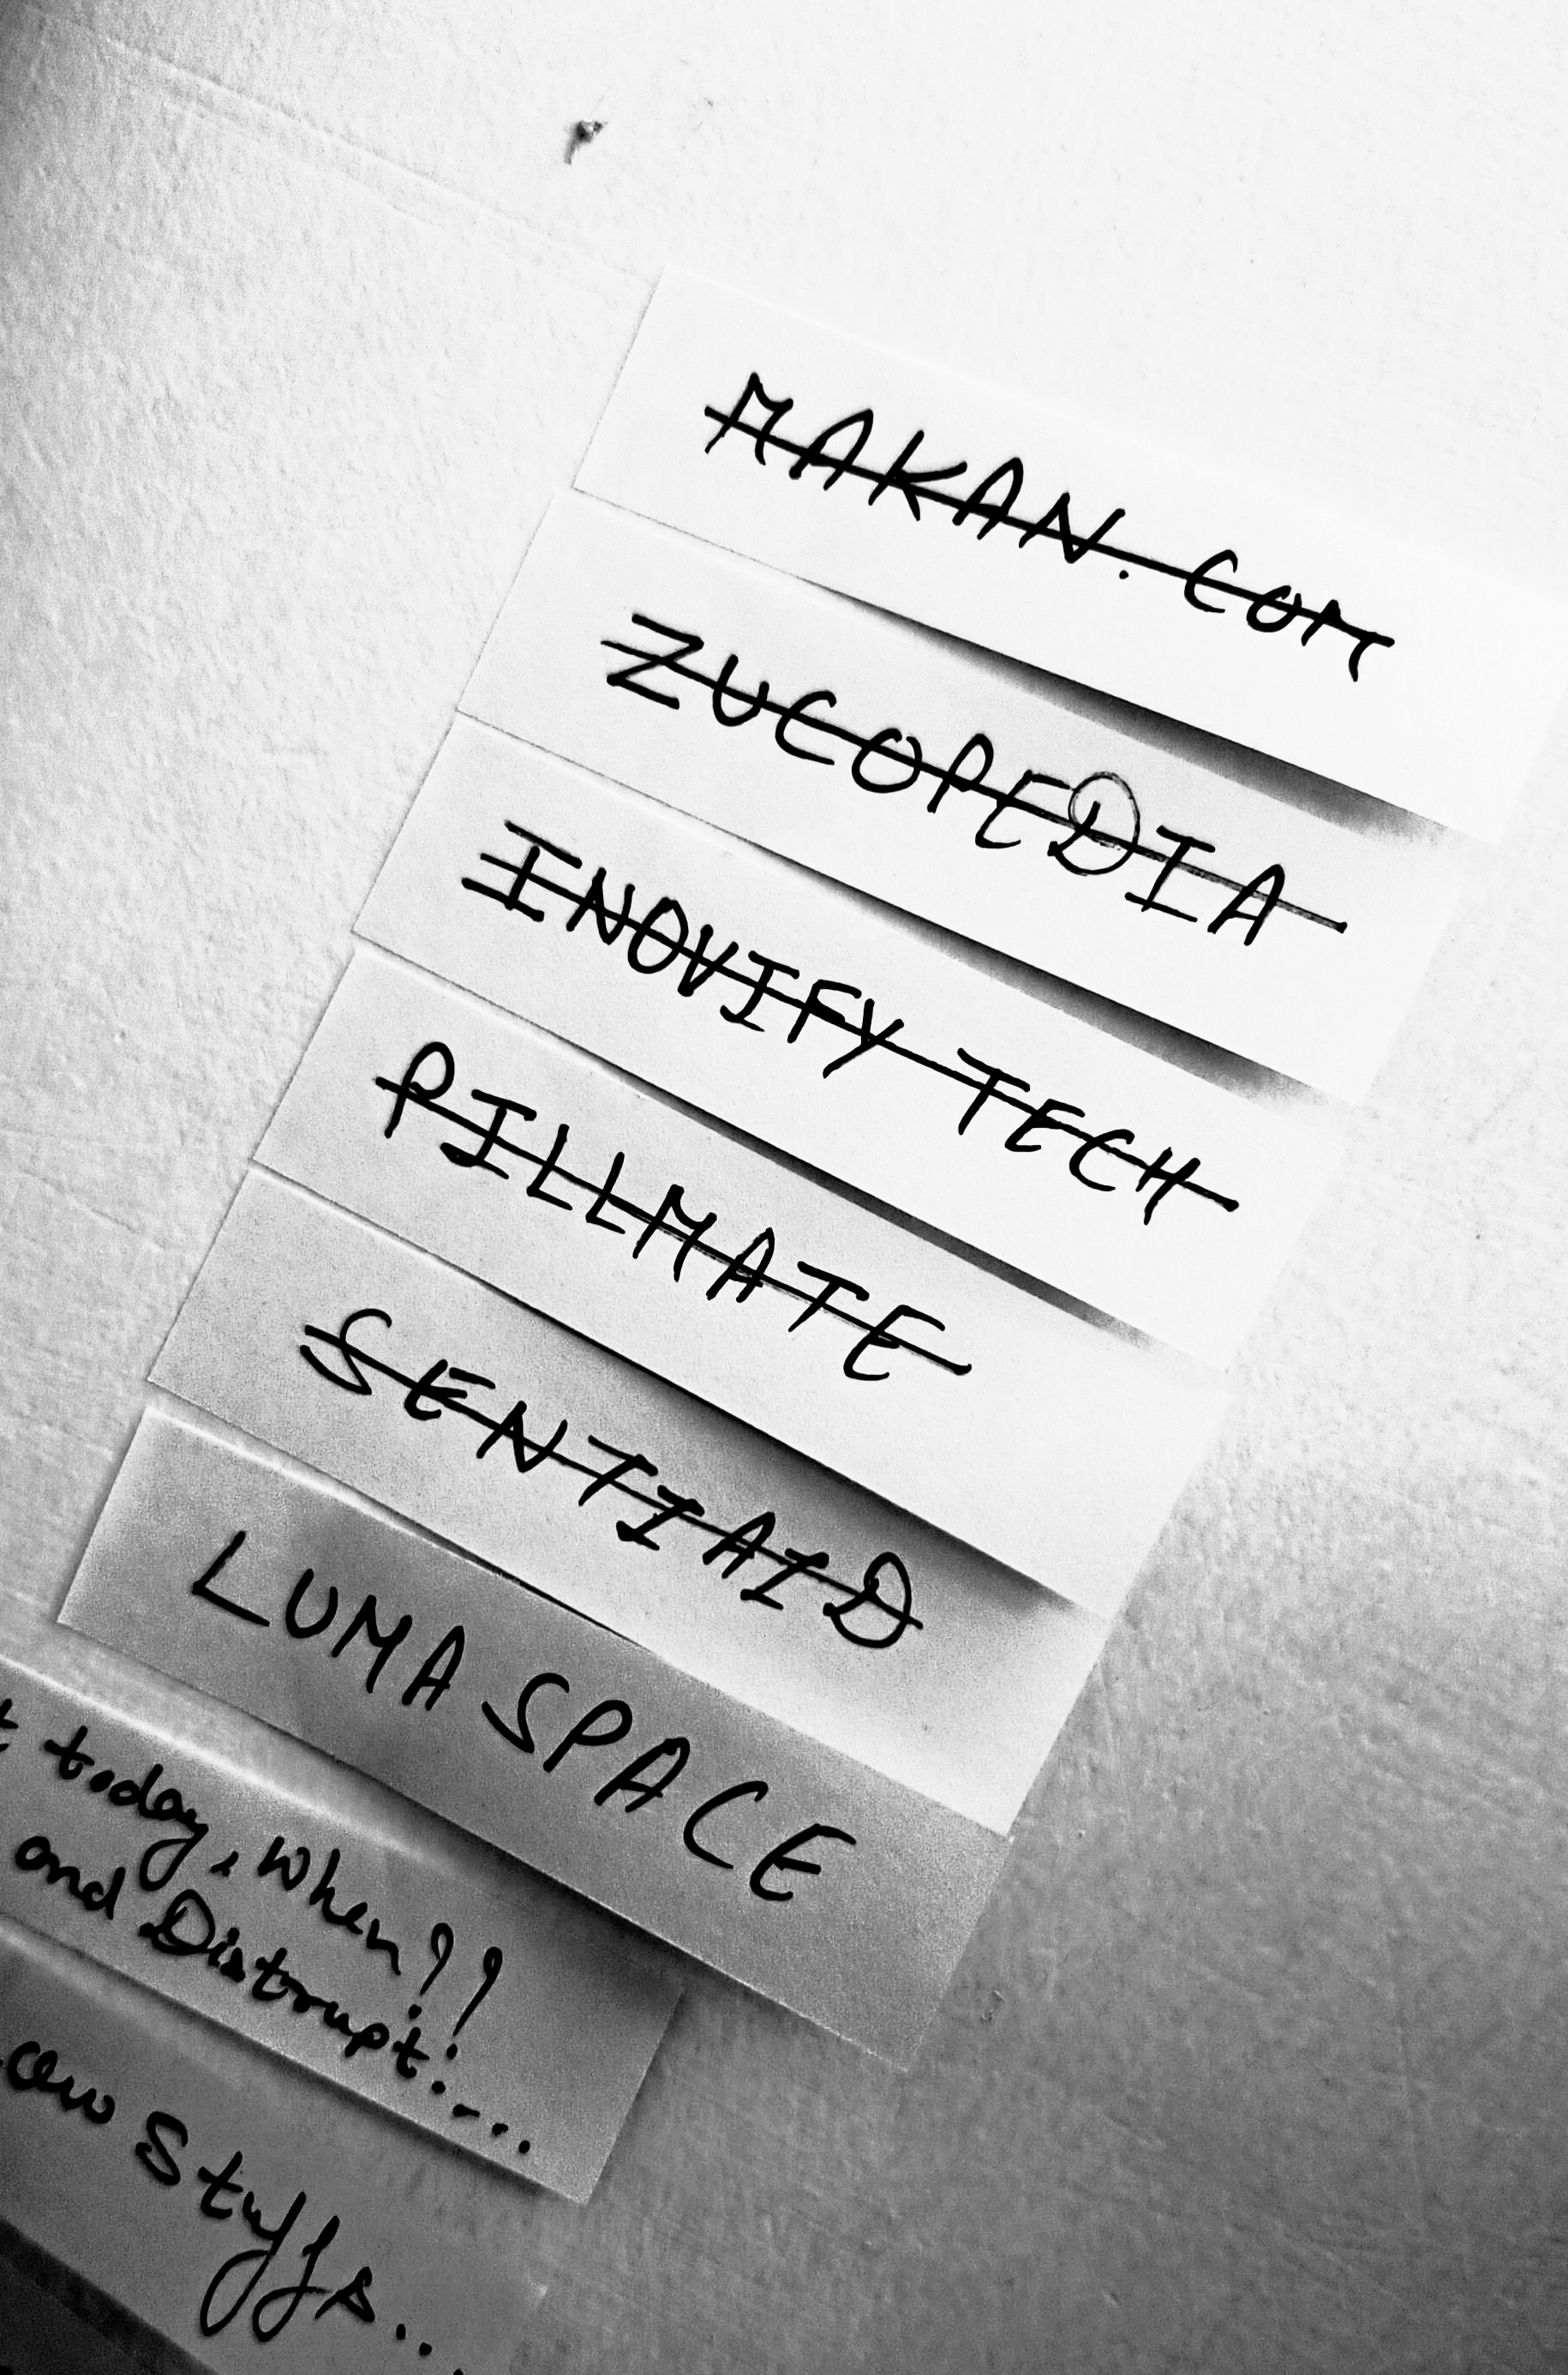 MAKAN.COM
ZUCOPEDIA
INOVIFY TECH
PILLMATE
SENTIAID
LUMA SPACE
today, When??
and Distrupt:...
Stuffs...